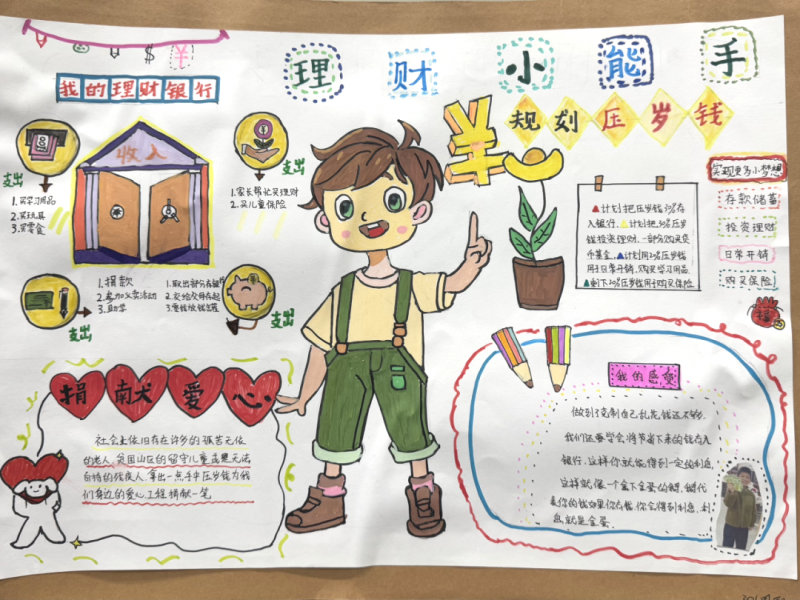 理财小能手
我的理财银行
规划压岁钱
收入
支出
1.买学习用品
2.买玩具
3.买零食
支出
1.家长帮忙买理财
2.买儿童保险
支出
1.捐款
2.参加义卖活动
3.助学
支出
1.取出部分存银行
2.交给父母存起
3.零钱放钱罐
▲计划把压岁钱
入银行,
岁钱投资理财.一部分购买货
币基金,
用于日常开销,购买学习用品.
▲剩下20%压岁钱用于购买保险.
实现更多小梦想
存款储蓄
投资理财
日常开销
购买保险
福
捐献爱心
社会上依旧存在许多的孤苦无依
的老人,贫困山区的留守儿童或是无法
自the残疾人,拿出一点手中压岁钱为我
们身边的爱心工程捐献一笔
我的感觉
做到了克制自己乱花钱还不够.
我们还要学会将节省下来的钱存入
银行,这样你就能得到一定的利息,
这样就像一个金下金蛋的鹅.鹅代
表你的钱如果你存钱,你会得到利息,利
息就是金蛋.